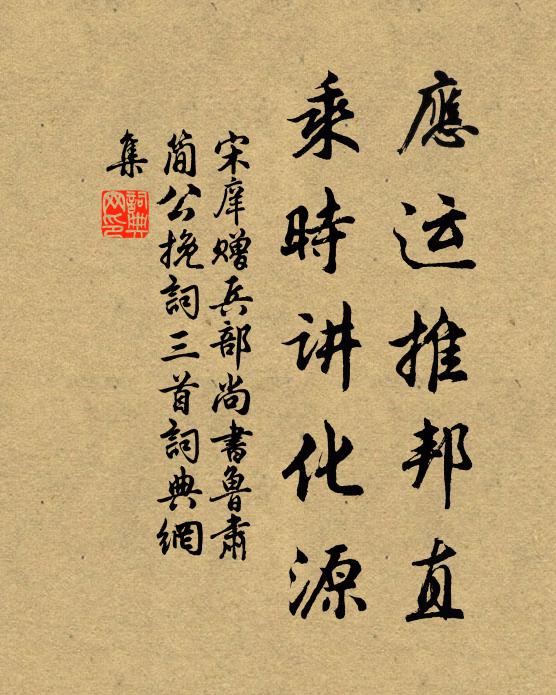 應运推邦直
乘時讲化源
宋庠赠兵部尚書魯肅
简公挽詞三首詞典網
集
詞典
网印